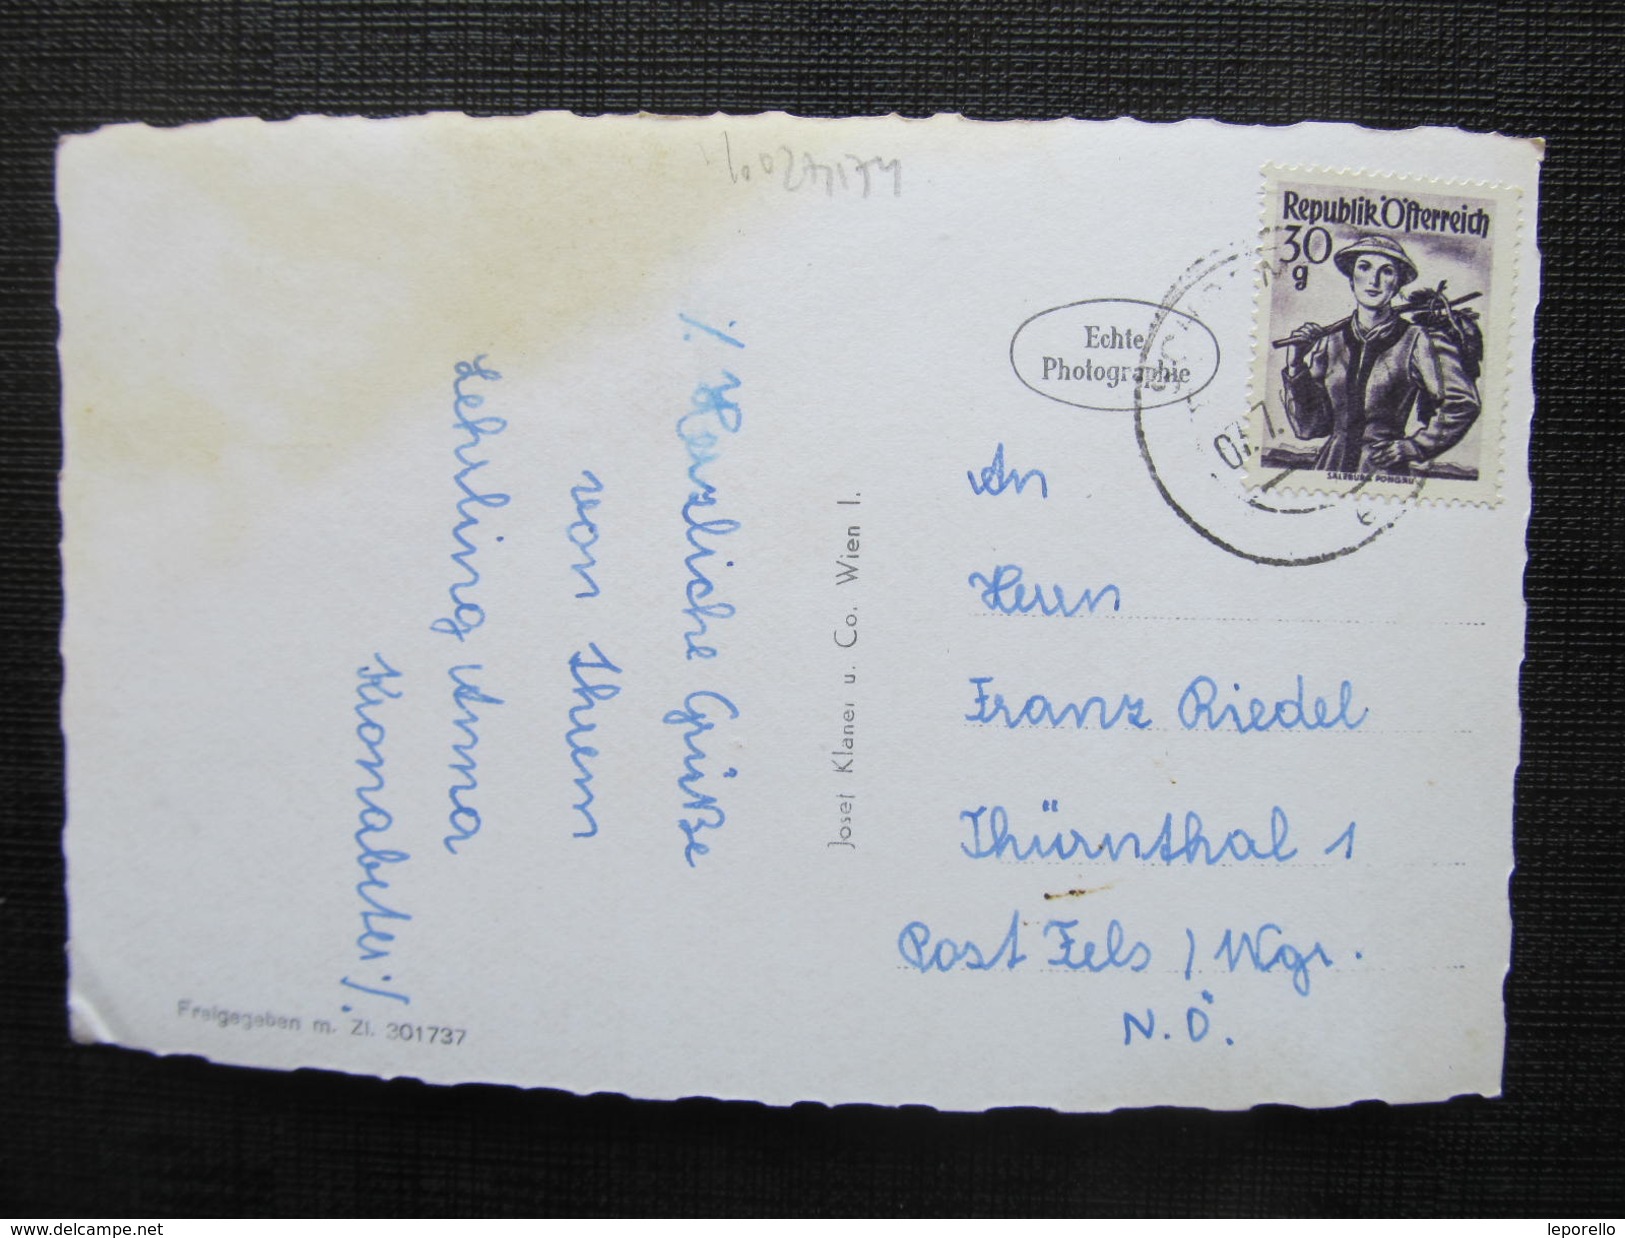 Republik Österreich
30
g
SALZBURG PONGAU
Echte
Photographie
Herzliche Grüße
von Ihrem
Lehrling Anna
Josef Klaner u. Co. Wien I.
An
Herrn
Franz Riedel
Thürnthal 1
Post Fels / Wgr.
N.Ö.
Freigegeben m. Zl. 301737
www.delcampe.net
leporello